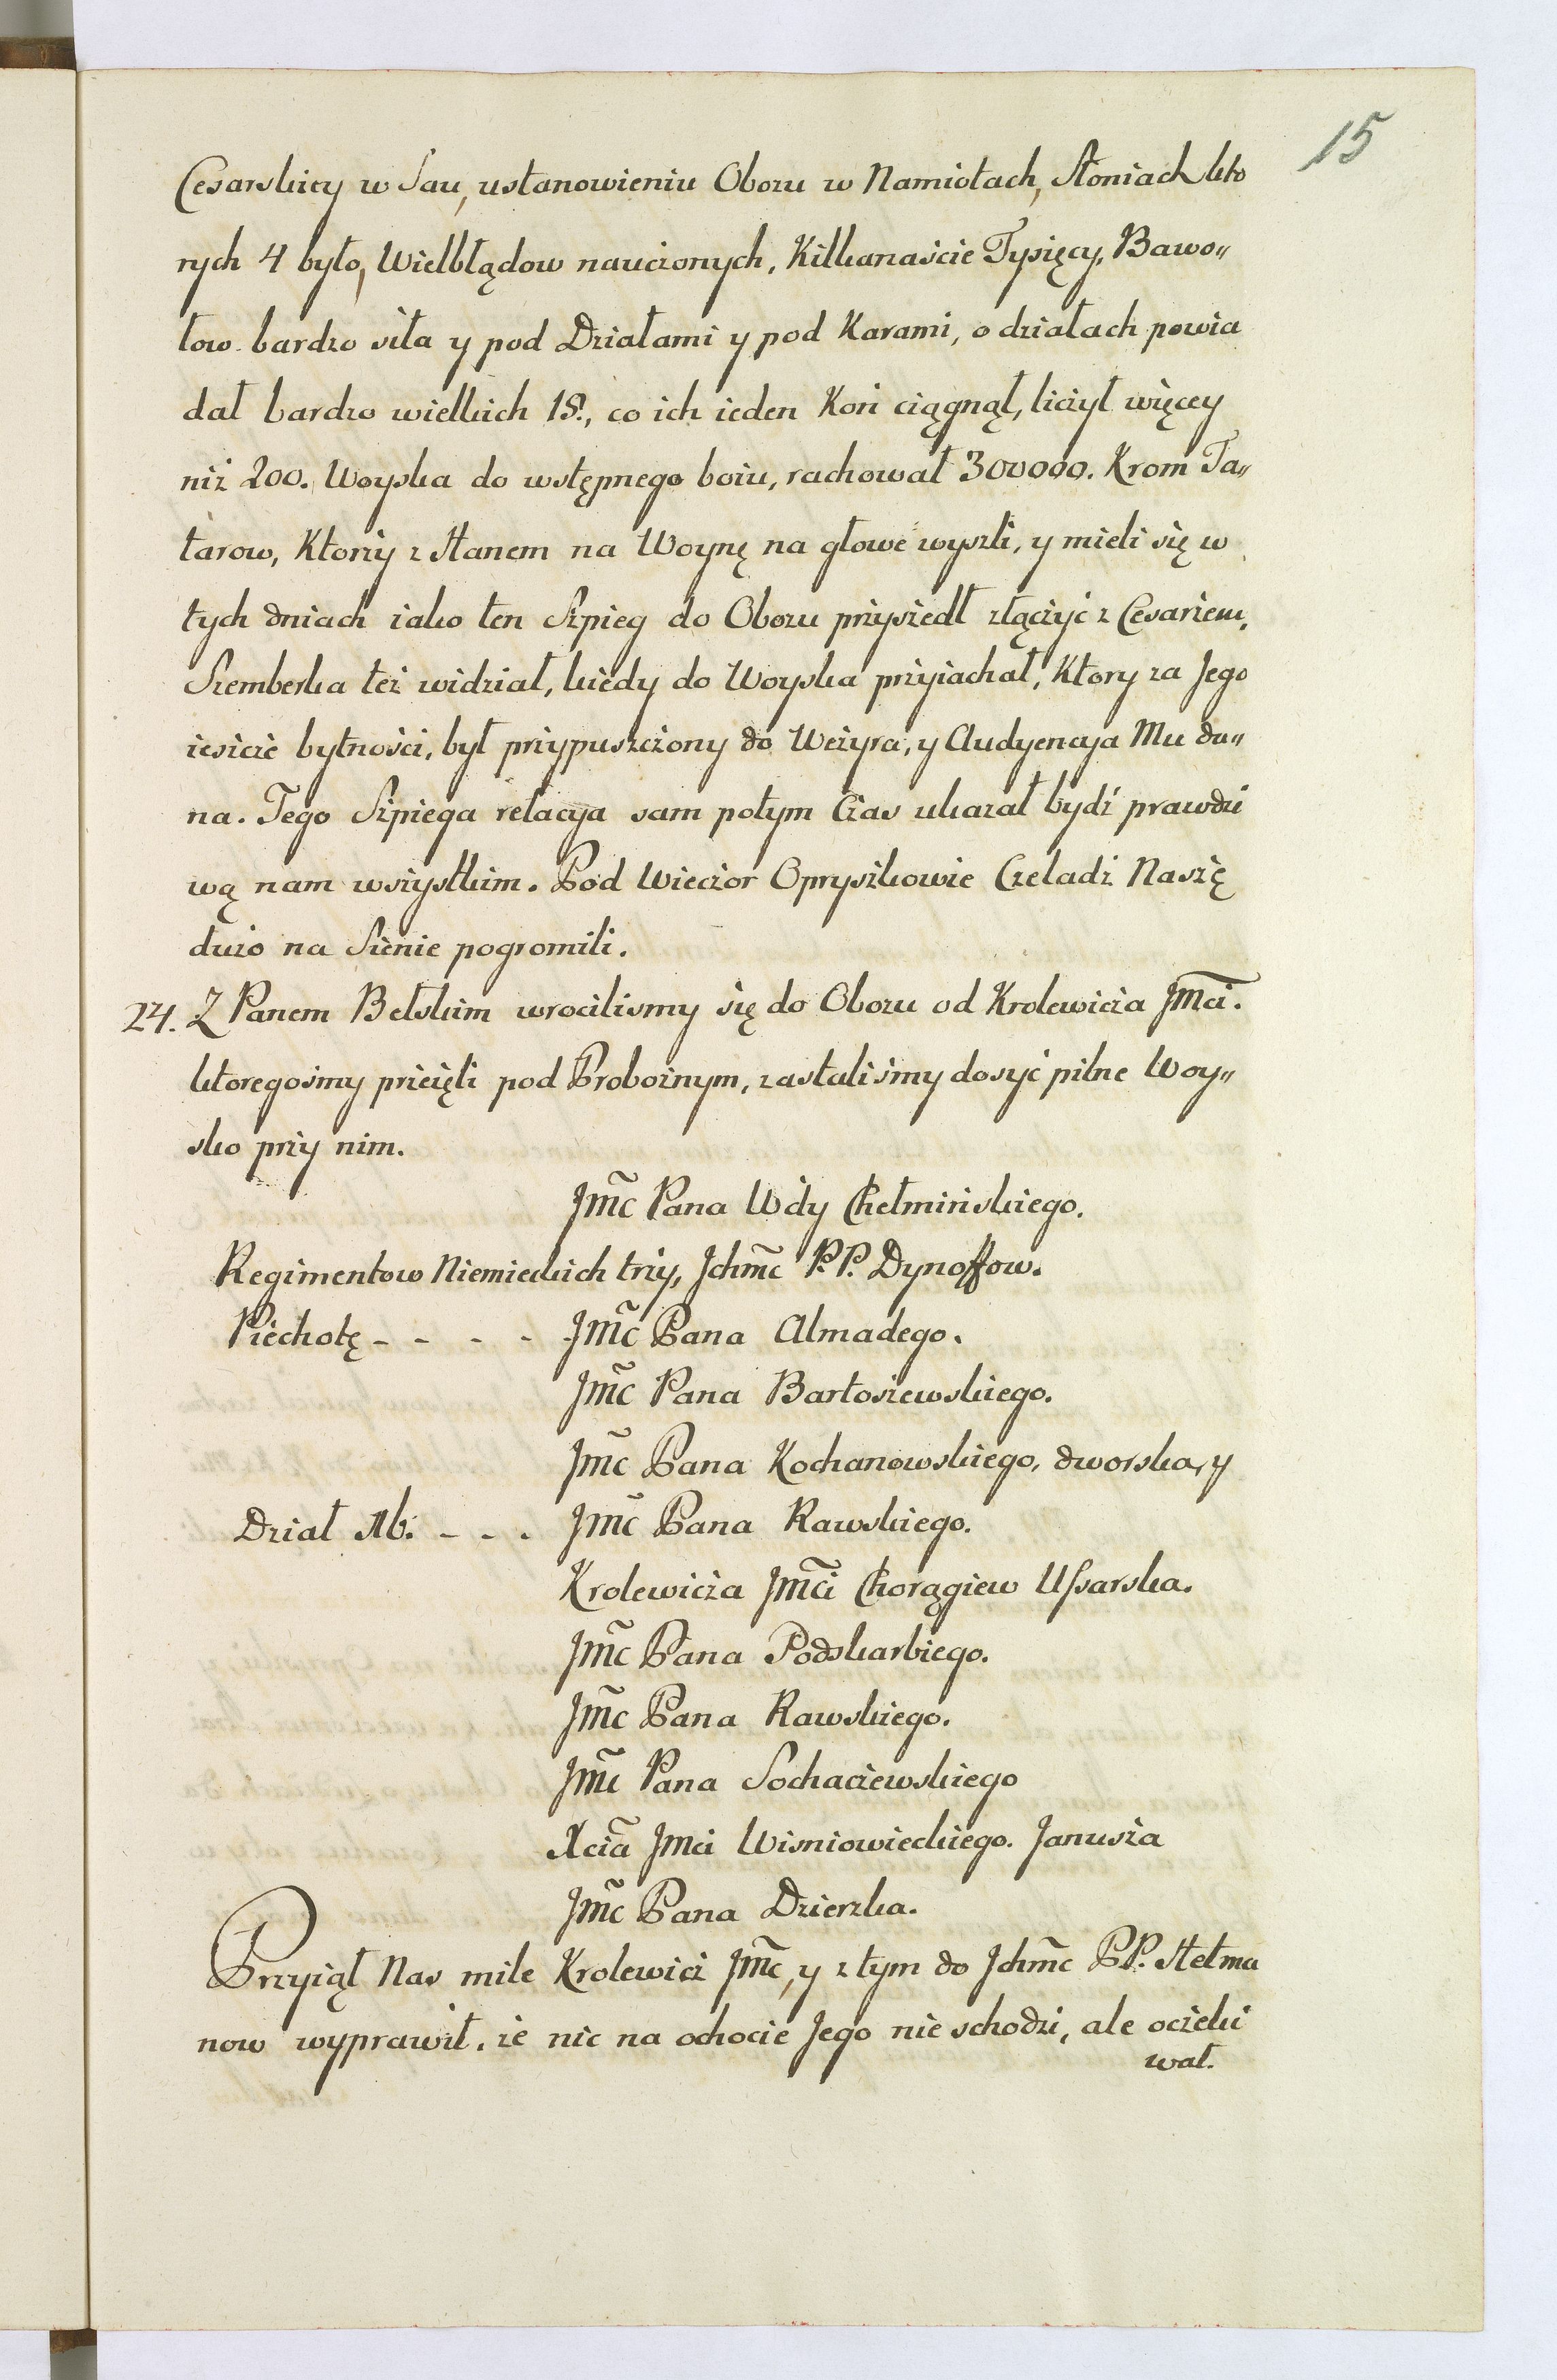 15
Cesarskiey w Sau, ustanowieniu Obozu w Namiotach, Słoniach kto
rych 4 było, Wielbłądow nauczonych, Kilkanaście Tysięcy, Bawo„
łow bardzo siła y pod Działami y pod Karami, o działach powia
dał bardzo wielkich 18., co ich ieden Koń ciągnął, liczył więcey
niż 200. Woyska do wstępnego boiu, rachował 300000. Krom Ta„
tarow, Ktorzy z Hanem na Woynę na głowe wyszli, y mieli się w
tych dniach iako ten Szpieg do Obozu przyszedł złączyć z Cesarzem,
Szemberka też widział, kiedy do Woyska przyiachał, Ktory za Jego
ieszcze bytności, był przypuszczony do Wezyra, y Audyencyja Mu da„
na. Tego Szpiega relacyja sam potym Czas ukazał bydź prawdzi
wą nam wszystkim. Pod Wieczor Opryszkowie Czeladź Naszę
dużo na Sienie pogromili.
24. Z Panem Bełskim wrocilismy się do Obozu od Krolewicza Jmci.
ktoregośmy przeięli pod Probożnym, zastaliśmy dosyć pilne Woy„
sko przy nim.
Jmc Pana Wdy Chełmińskiego.
Regimentow Niemieckich trzy, Jchmc P.P. Dynoffow.
Piechotę - - - - Jmc Pana Almadego.
Jmc Pana Bartoszewskiego.
Jmc Pana Kochanowskiego, dworska, y
Dział 16. - - - Jmc Pana Rawskiego.
Krolewicza Jmci Chorągiew Ussarska.
Jmc Pana Podskarbiego.
Jmc Pana Rawskiego.
Jmc Pana Sochaczewskiego
Xcia Jmci Wisniowieckiego. Janusza
Jmc Pana Dzierzka.
Przyiął Nas mile Krolewicz Jmc, y z tym do Jchmc PP. Hetma
now wyprawił, że nic na ochocie Jego nie schodzi, ale oczeki
wał.